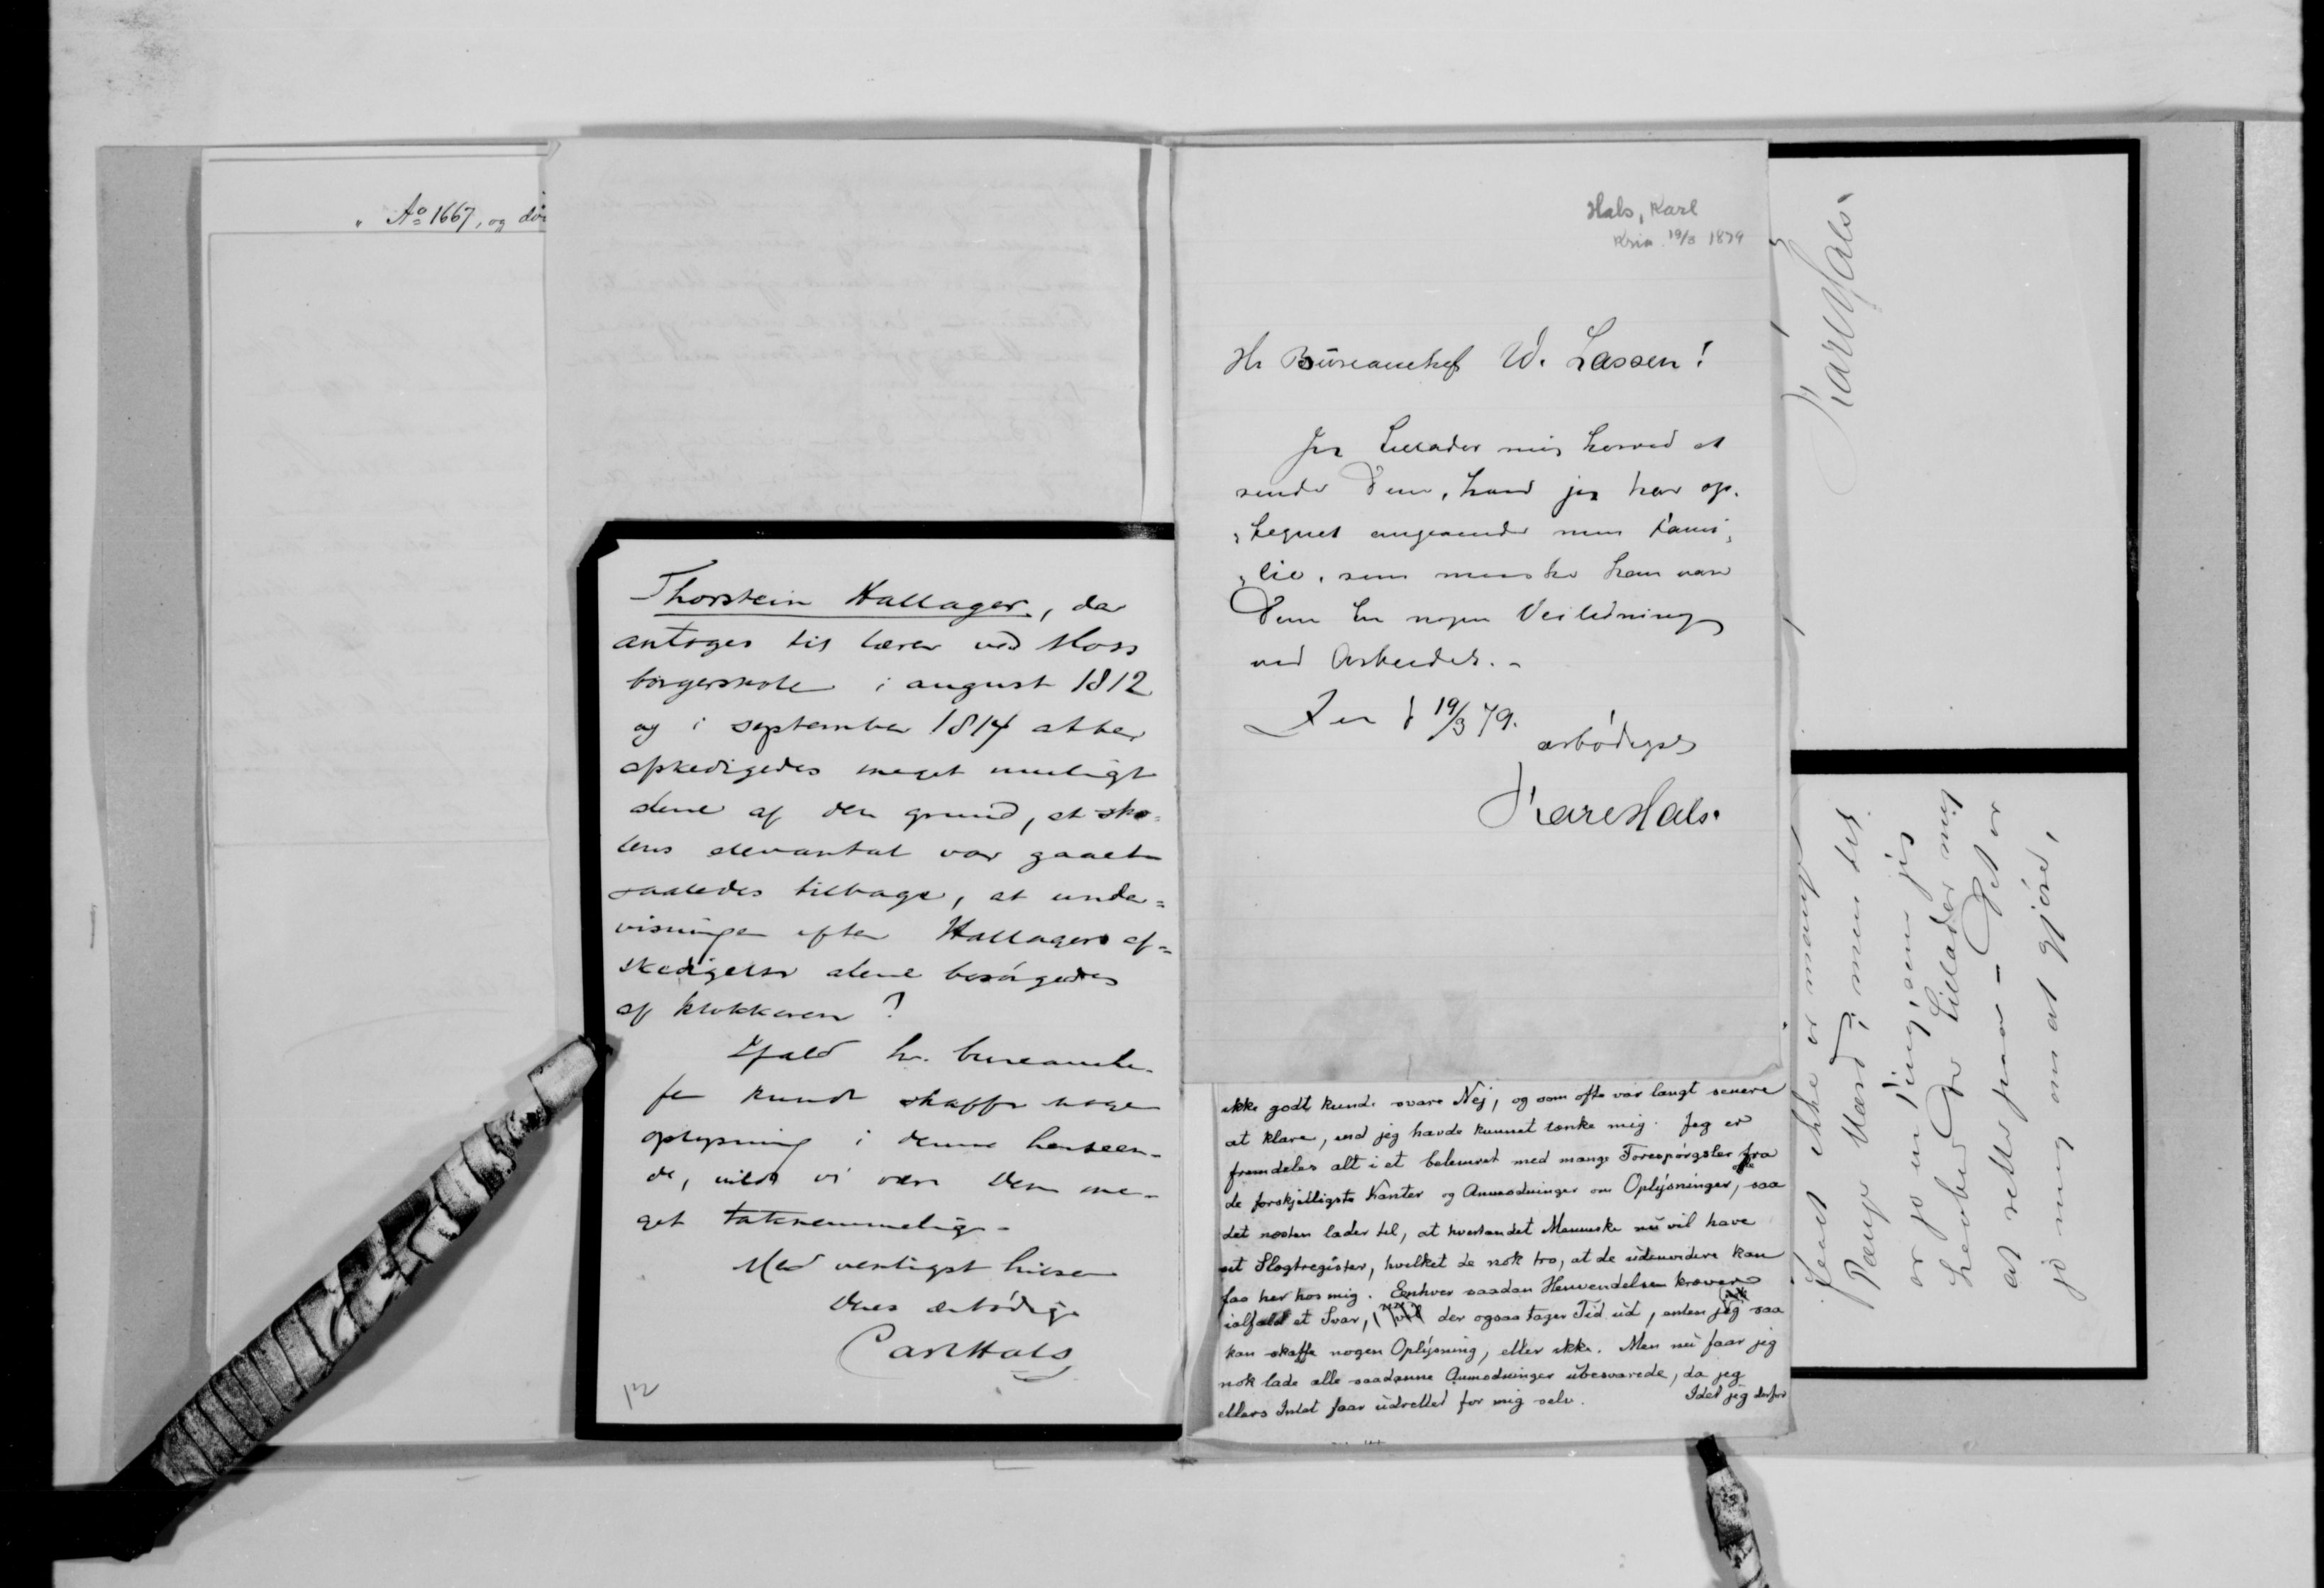 " Aº 1667, og dø
Thorstein Hallager, der
antoges til lærer ved Moss
borgerskole i august 1812
og i september 1814 atter
afskedigedes meget mueligt
alene af den grund, at sko=
lens elevantal var gaaet
saaledes tilbage, at under=
visningen efter Hallagers af=
skedigelse alene besørgedes
af klokkeren?
Ifald hr. bureauche-
fen kunde skaffe nogen
oplysning i denne henseen-
de, vilde vi være Dem me-
get taknemmelig-
Med venligst hilsen
Deres ærbødige
Carl Hals
12
Hals, Karl
Kria. 19/3 1879
Hr Büreauchef W. Lassen!
Jeg tillader mig herved at
sende Dem, hvad jeg har op-
tegnet angaaende min Fami,
lie, som maaske kan være
Dem til nogen Veiledning
ved Arbeidet.-
19/3 79.
ærbødigst
Karl Hals.
ikke godt kunde svare Nej, og som ofte var langt senere
at klare, end jeg havde kunnet tænke mig. Jeg er
fremdeles alt i et belemret med mange Forespørgsler fra
de forskjelligste Kanter og Anmodninger om Oplysninger, saa
det næsten lader til, at hvertandet Menneske nü vil have
sit Slægtregister, hvilket de nok tro, at de üdenvidere kan
faa her hos mig. Enhver saadan Henvendelse kræver
ialfald et Svar, der ogsaa tager Tid üd, enten jeg saa
kan skaffe nogen Oplysning, eller ikke. Men nü faar jeg
nok lade alle saadanne Anmodninger übesvarede, da jeg
ellers Intet faar üdrettet for mig selv. Idet jeg derfor
Karl Hals.
ikke er mange
Penge Værd, men det
er jo en Ting, som jeg
haaber De tillader mig
at rette paa - Det er
jo mig om at gjøre,